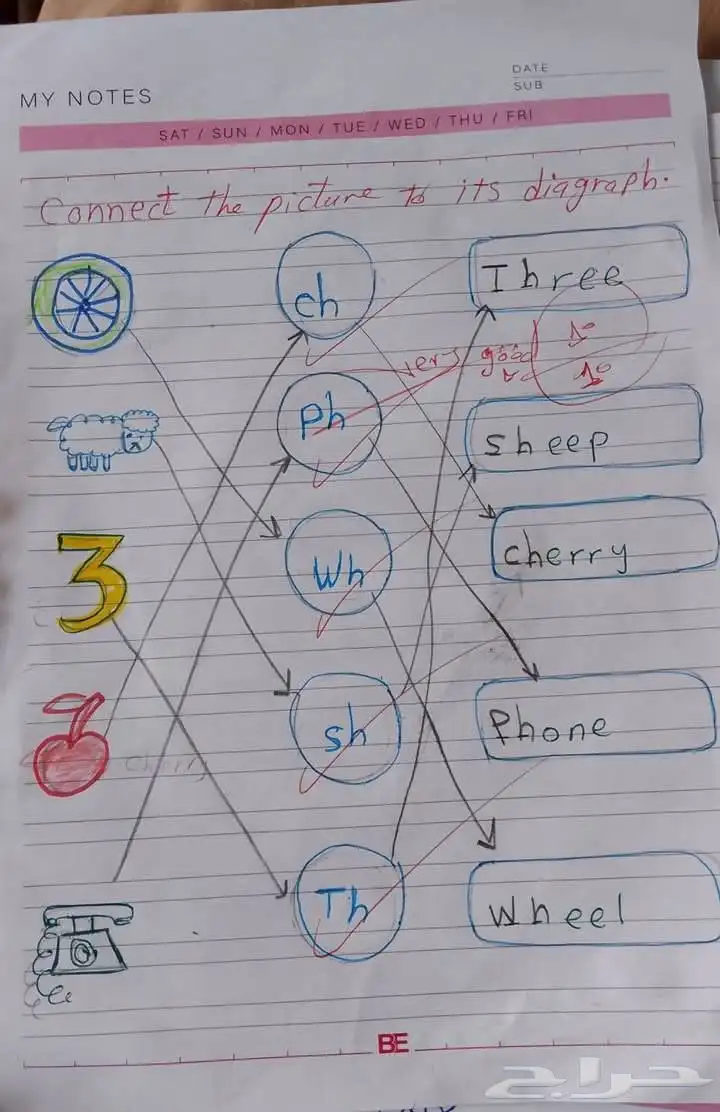 DATE
SUB
MY NOTES
SAT / SUN / MON / TUE / WED / THU / FRI
Connect the picture to its diagraph.
ch
Three
very good 10
10
Ph
sheep
Wh
cherry
3
sh
Phone
Cherry
Th
Wheel
BE
حراج